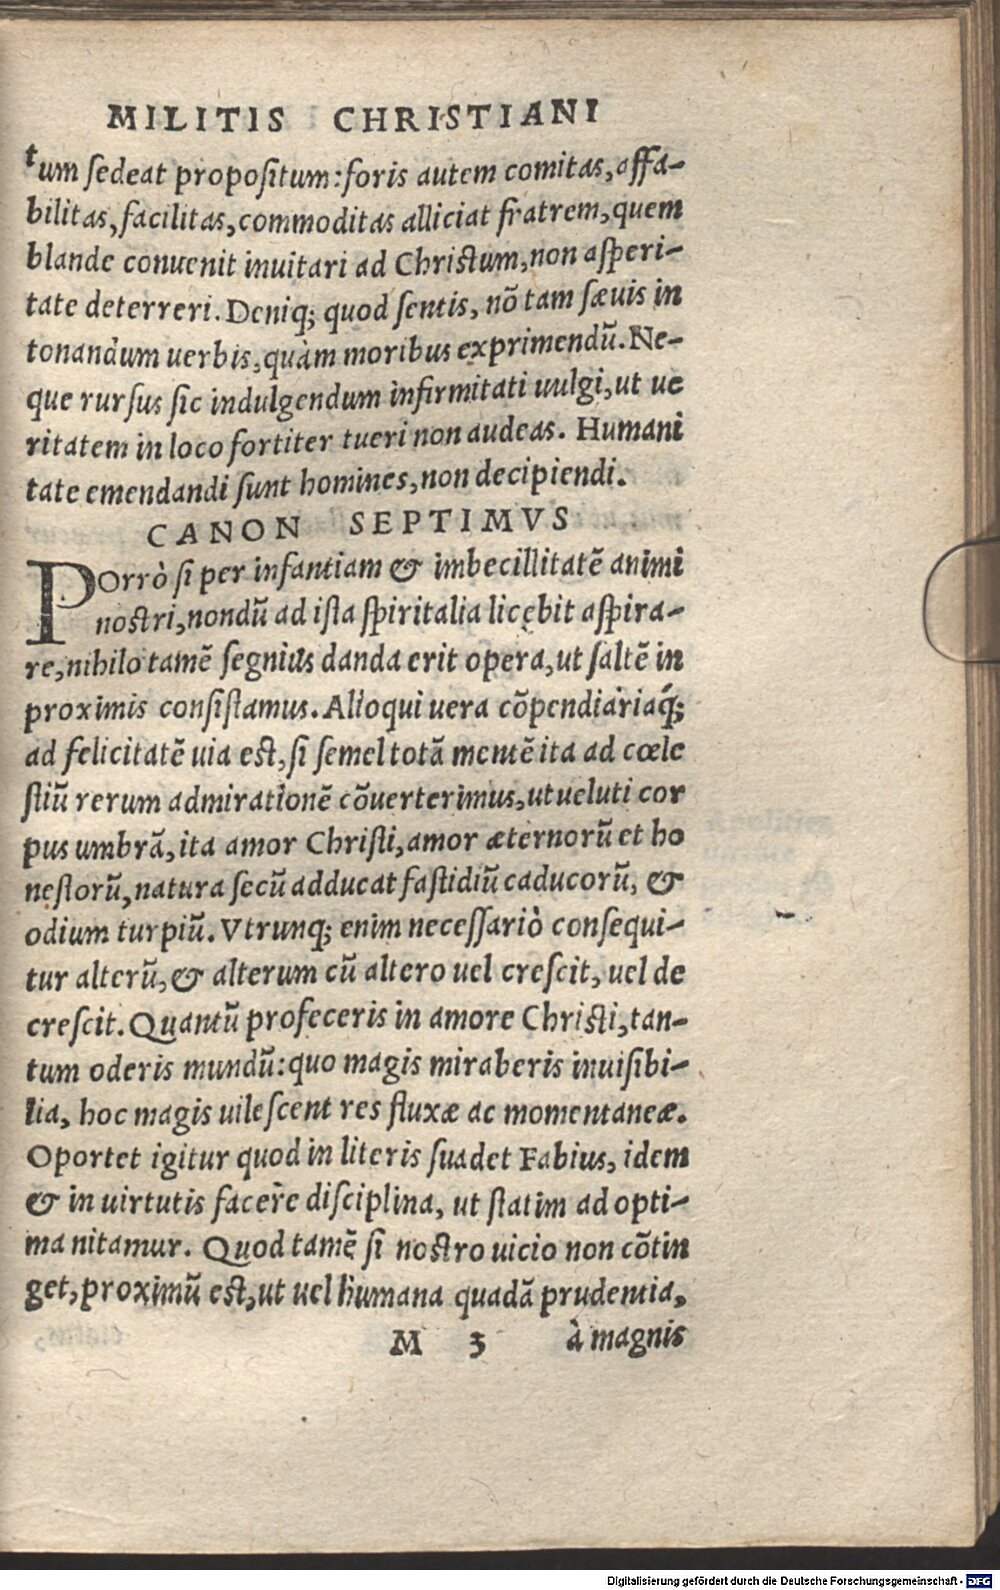 MILITIS CHRISTIANI
tum sedeat propositum: foris autem comitas, affa-
bilitas, facilitas, commoditas alliciat fratrem, quem
blande conuenit inuitari ad Christum, non asperi-
tate deterreri. Deniq; quod sentis, nõ tam sæuis in
tonandum uerbis, quàm moribus exprimendũ. Ne-
que rursus sic indulgendum infirmitati uulgi, ut ue
ritatem in loco fortiter tueri non audeas. Humani
tate emendandi sunt homines, non decipiendi.
CANON SEPTIMVS
POrrò si per infantiam & imbecillitatẽ animi
nostri, nondũ ad ista spiritalia licębit aspira-
re, nihilo tamẽ segnius danda erit opera, ut saltẽ in
proximis consistamus. Alioqui uera cõpendiariaq́;
ad felicitatẽ uia est, si semel totã mentẽ ita ad cœle
stiũ rerum admirationẽ cõuerterimus, ut ueluti cor
pus umbrã, ita amor Christi, amor æternorũ et ho
nestorũ, natura secũ adducat fastidiũ caducorũ, &
odium turpiũ. Vtrunq; enim necessariò consequi-
tur alterũ, & alterum cũ altero uel crescit, uel de
crescit. Quantũ profeceris in amore Christi, tan-
tum oderis mundũ: quo magis miraberis inuisibi-
lia, hoc magis uilescent res fluxæ ac momentaneæ.
Oportet igitur quod in literis suadet Fabius, idem
& in uirtutis facere disciplina, ut statim ad opti-
ma nitamur. Quod tamẽ si nostro uicio non cõtin
get, proximũ est, ut uel humana quadã prudentia,
M 3 à magnis
Digitalisierung gefördert durch die Deutsche Forschungsgemeinschaft - DFG